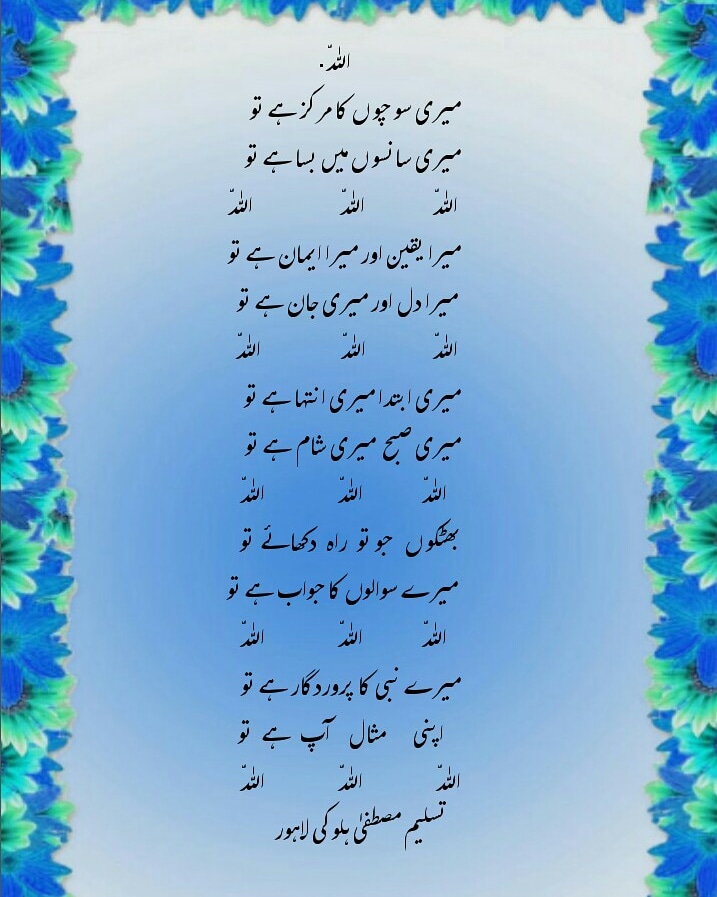 اللہ.
میری سوچوں کا مرکز ہے تو
میری سانسوں میں بسا ہے تو
اللہ اللہ اللہ
میرا یقین اور میرا ایمان ہے تو
میرا دل اور میری جان ہے تو
اللہ اللہ اللہ
میری ابتدا میری انتہا ہے تو
میری صبح میری شام ہے تو
اللہ اللہ اللہ
بھٹکوں جو تو راہ دکھائے تو
میرے سوالوں کا جواب ہے تو
اللہ اللہ اللہ
میرے نبی کا پروردگار ہے تو
اپنی مثال آپ ہے تو
اللہ اللہ اللہ
تسلیم مصطفیٰ ہلوکی لاہور